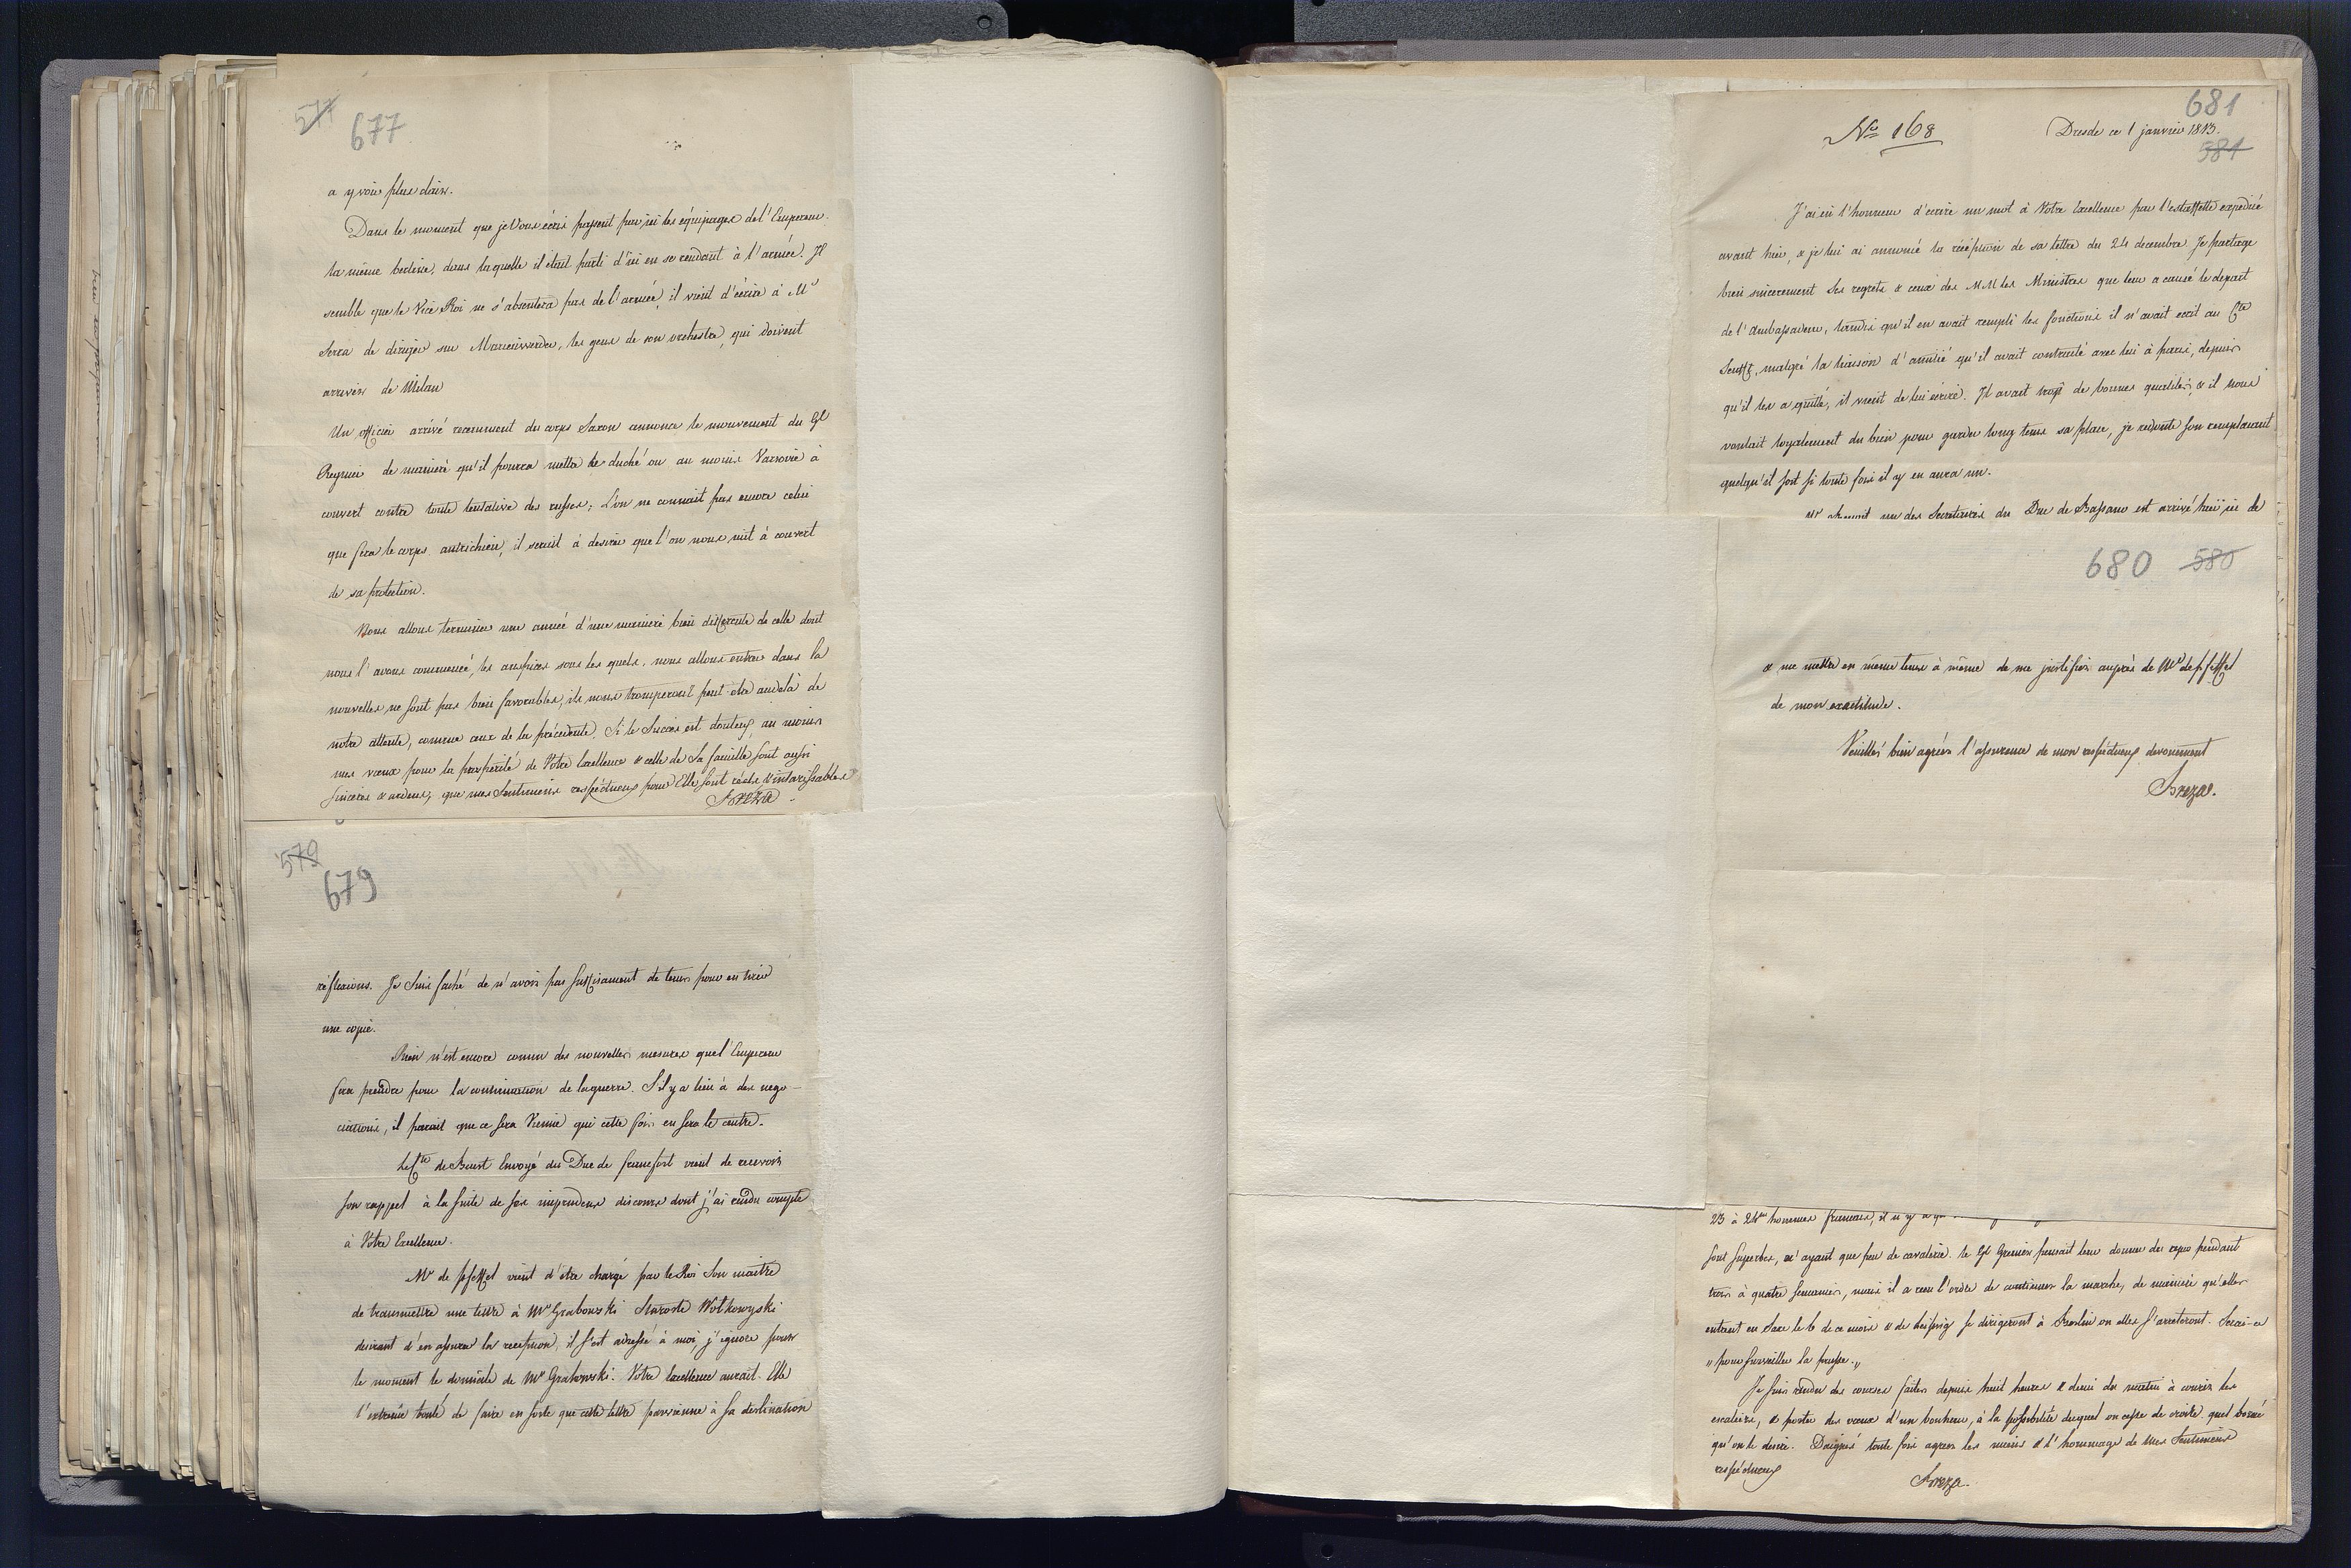 577
677
a y voir plus clair.
Dans le moment que je Vous écris passent par ici les équipages de l'Empereur
la même berline, dans laquelle il était parti d'ici en se rendant à l'armée. Il
semble que le Vice Roi ne s'absentera pas de l'armée, il vient d'écrire à Mr
Serra de diriger sur Marienwerder, les gens de son orchestre, qui doivent
arriver de Milan
Un officier arrivé recemment du corps Saxon annonce le mouvement du Gl
Regnier de manière qu'il pourra mettre le duché ou au moins Varsovie à
couvert contre toute tentative des russes; L'on ne connait pas encore celui
que fera le corps autrichien, il serait à desirer que l'on nous mit à couvert
de sa protection.
Nous allons terminer une année d'une manière bien differente de celle dont
nous l'avons commencé, les auspices sous les quels, nous allons entrer dans la
nouvelle ne sont pas bien favorables, ils nous tromperont peut être audelà de
notre attente, comme ceux de la précedente. Si le Succès est douteux, au moins
mes vœux pour la prosperité de Votre Excellence & celle de Sa famille sont aussi
sinceres & ardens, que mes Sentimens respectueux pour Elle sont réels & intarissables
Breza
579
679
reflexions. Je Suis faché de n'avoir pas suffisament de tems pour en tirer
une copie.
Rien n'est encore connu des nouvelles mesures que l'Empereur
fera prendre pour la continuation de la guerre. S'il y a lieu à des nego-
ciations, il parait que ce sera Vienne qui cette fois en sera le centre.
Le Cte de Beust Envoyé du Duc de francfort vient de recevoir
son rappel à la suite de ses imprudens discours dont j'ai rendu compte
à Votre Excellence.
Mr de pfeffel vient d'etre chargé par le Roi Son maitre
de transmettre une lettre à Mr Grabowski Staroste Wolkowyski
desirant d'en assurer la reception, il s'est adressé à moi, j'ignore pour
le moment le domicile de Mr Grabowski. Votre Excellence aurait Elle
l'extreme bonté de faire en sorte que cette lettre parvienne à sa destination
681
No 168
Dresde ce 1 janvier 1813.
581
J'ai eü l'honneur d'ecrire un mot à Votre Excellence par l'estaffette expediée
avant hier, & je lui ai annoncé la réception de sa lettre du 24 decembre. Je partage
bien sincerement Ses regrets & ceux des MM les Ministres que leur a causé le depart
de l'Ambassadeur, tandis qu'il en avait rempli les fonctions il n'avait ecrit au Cte
Senfft, malgré la liaison d'amitié qu'il avait contracté avec lui à paris, depuis
qu'il les a quitté, il vient de lui écrire. Il avait trop de bonnes qualités, & il nous
voulait loyalement du bien pour garder long tems sa place, je redoute son remplacant
quelqu'il soit si toute fois il y en aura un.
un des Secretaires du Duc de Bassano est arrivé hier ici de
680 580
& me mettre en même tems à même de me justifier auprès de Mr de pfeffel
de mon exactitude.
Veuillés bien agréer l'assurance de mon respectueux devouement
Breza.
23 à 24m hommes francais, il n'y a
sont superbes, n'ayant que peu de cavalerie. le Gl Grenier pensait leur donner du repos pendant
trois à quatre semaines, mais il a recu l'ordre de continuer la marche, de manière qu'elles
entrent en Saxe le 6 de ce mois & de Leipzig se dirigeront à Berlin ou elles s'arreteront. Serai-ce
" pour surveiller la prusse. "
Je suis rendu des courses faites depuis huit heures & demi du matin à courir les
escaliers, & porter des vœux d'un bonheur, à la possibilité duquel on cesse de croire quel borné
qu'on le desire. Daignés toute fois agréer les miens & l'hommage de mes Sentimens
respectueux
Breza.